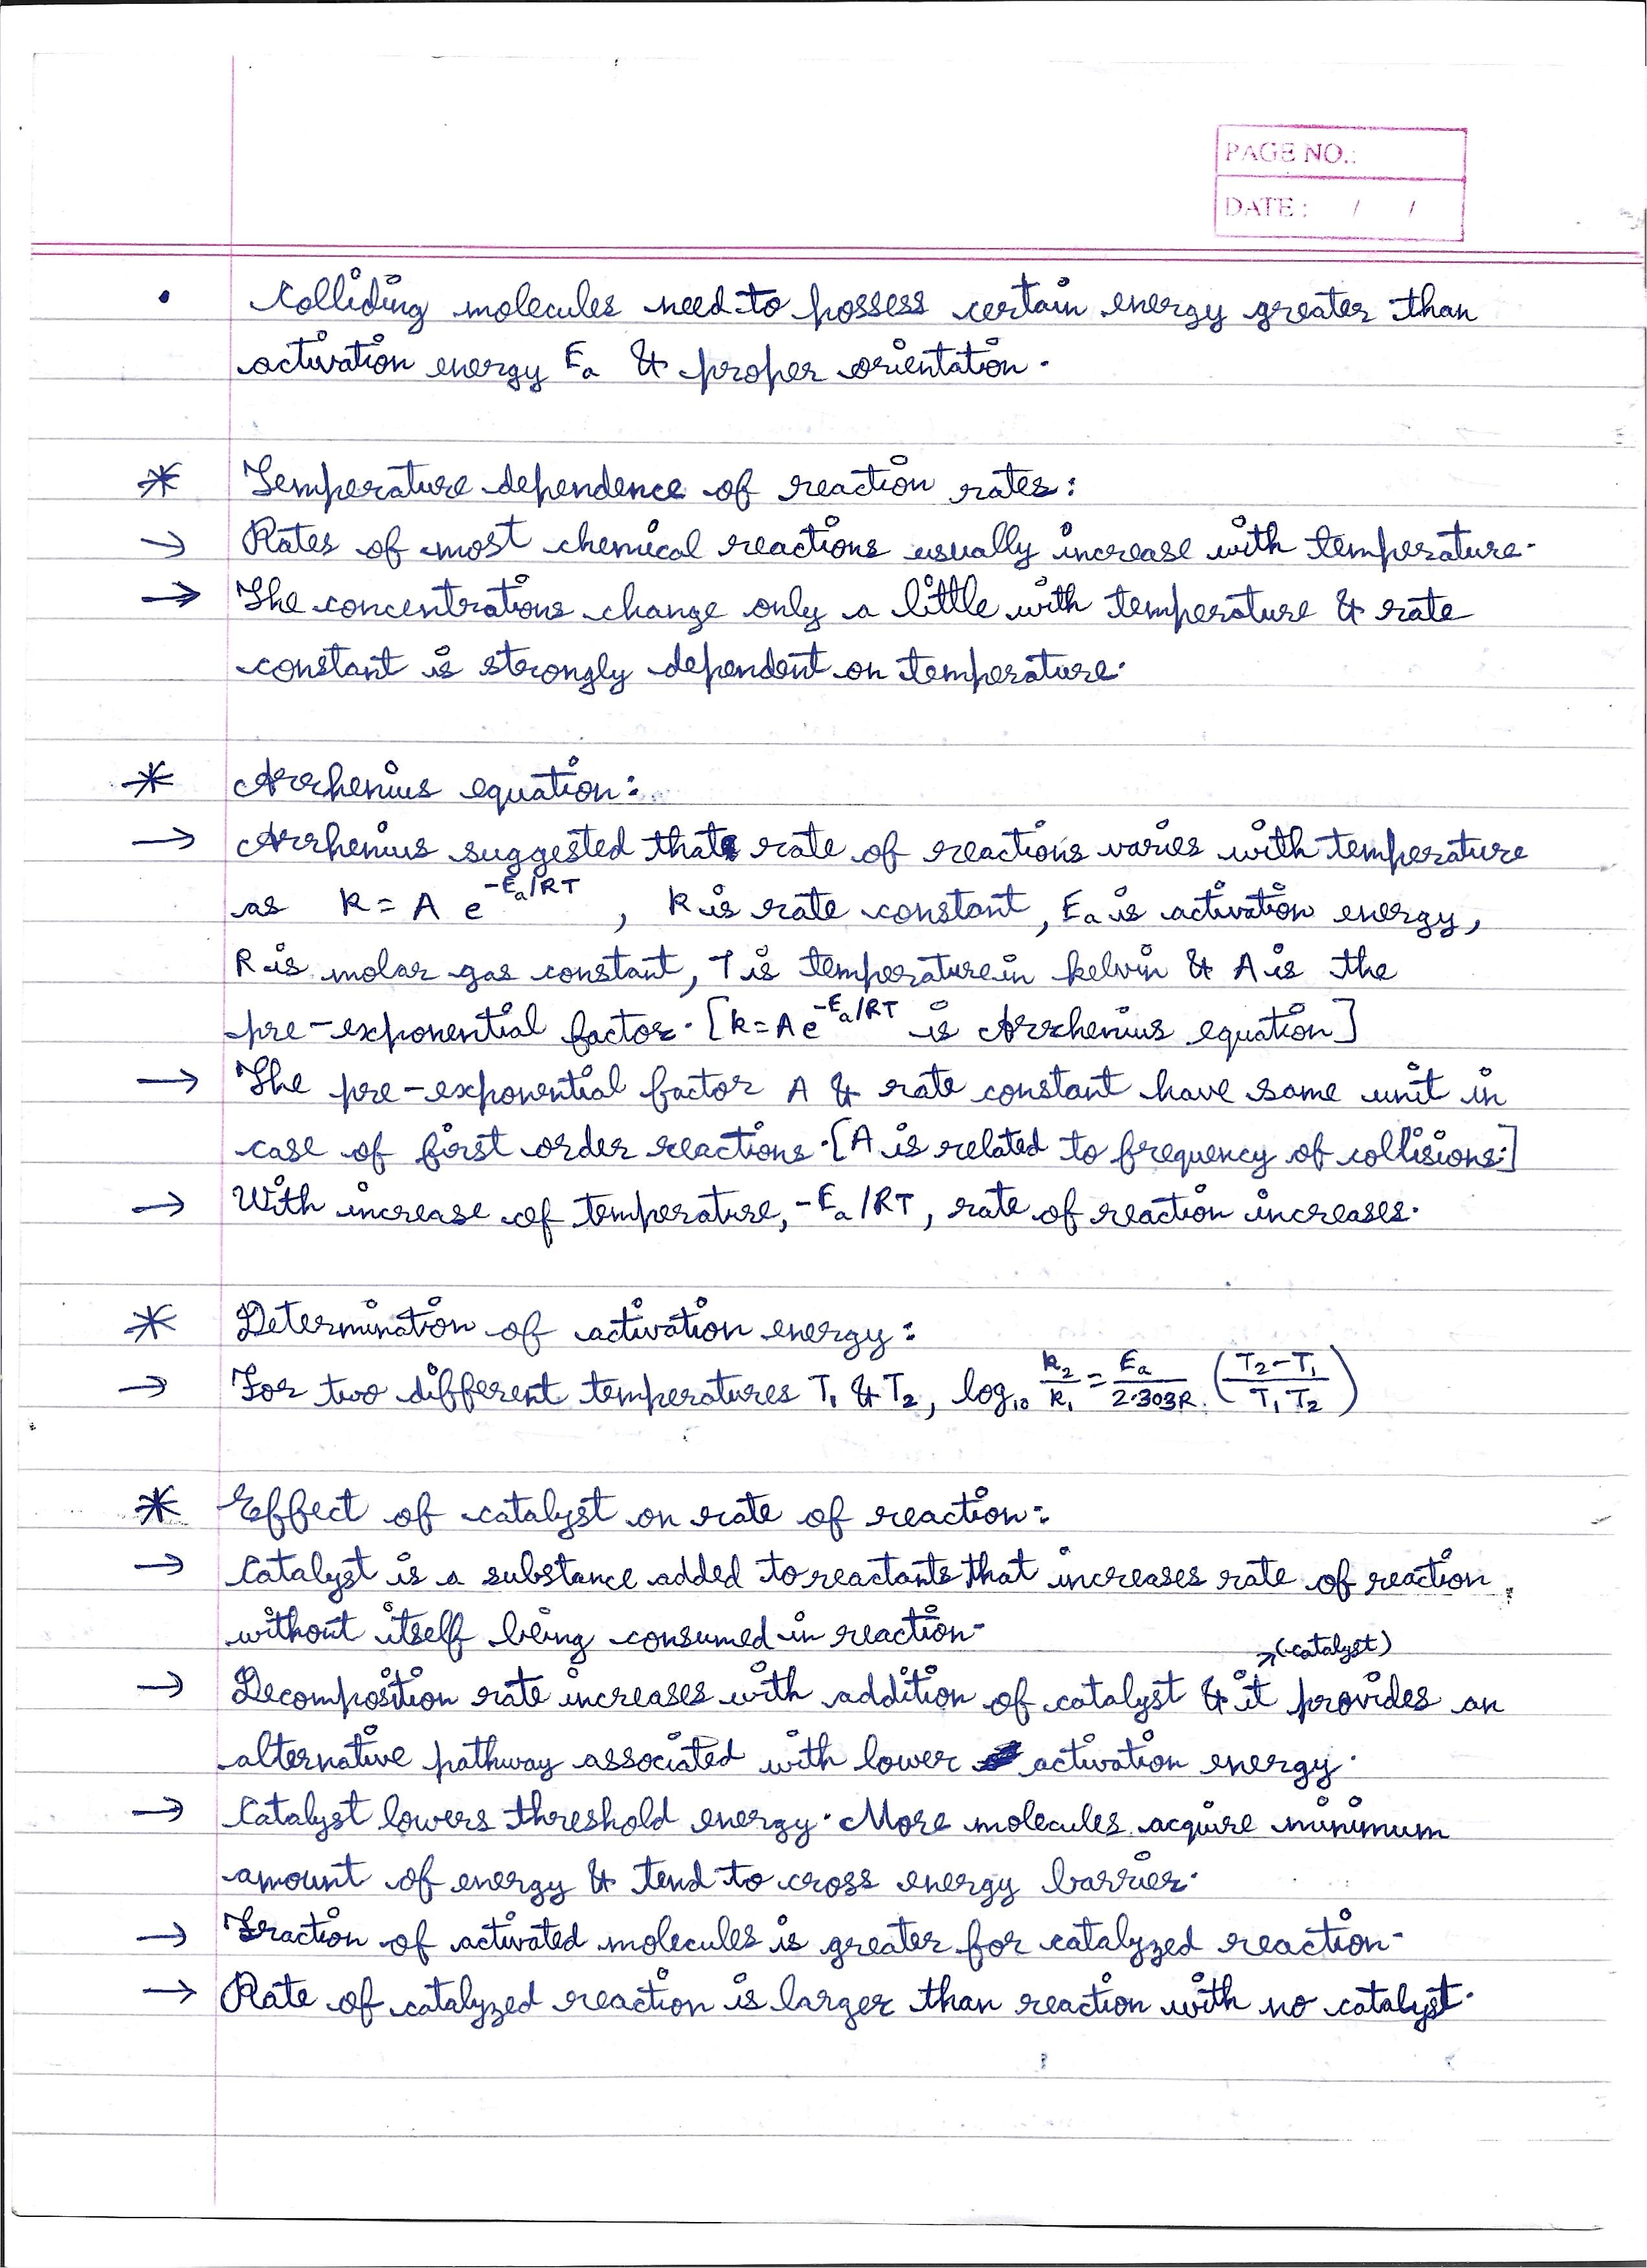 PAGE NO.:
DATE: / /
• Colliding molecules need to possess certain energy greater than
activation energy Ea & proper orientation.
* Temperature dependence of reaction rates:
→ Rates of most chemical reactions usually increase with temperature.
→ The concentrations change only a little with temperature & rate
constant is strongly dependent on temperature.
* Arrhenius equation:
→ Arrhenius suggested that rate of reactions varies with temperature
as k = A e^(-Ea/RT), k is rate constant, Ea is activation energy,
R is molar gas constant, T is temperature in kelvin & A is the
pre-exponential factor. [k = A e^(-Ea/RT) is Arrhenius equation]
→ The pre-exponential factor A & rate constant have same unit in
case of first order reactions. [A is related to frequency of collisions.]
→ With increase of temperature, -Ea/RT, rate of reaction increases.
* Determination of activation energy:
→ For two different temperatures T₁ & T₂, log₁₀ k₂/k₁ = Ea/2.303R (T₂-T₁/T₁T₂)
* Effect of catalyst on rate of reaction:
→ Catalyst is a substance added to reactants that increases rate of reaction
without itself being consumed in reaction.
→ (catalyst)
→ Decomposition rate increases with addition of catalyst & it provides an
alternative pathway associated with lower activation energy.
→ Catalyst lowers threshold energy. More molecules acquire minimum
amount of energy & tend to cross energy barrier.
→ Fraction of activated molecules is greater for catalyzed reaction.
→ Rate of catalyzed reaction is larger than reaction with no catalyst.